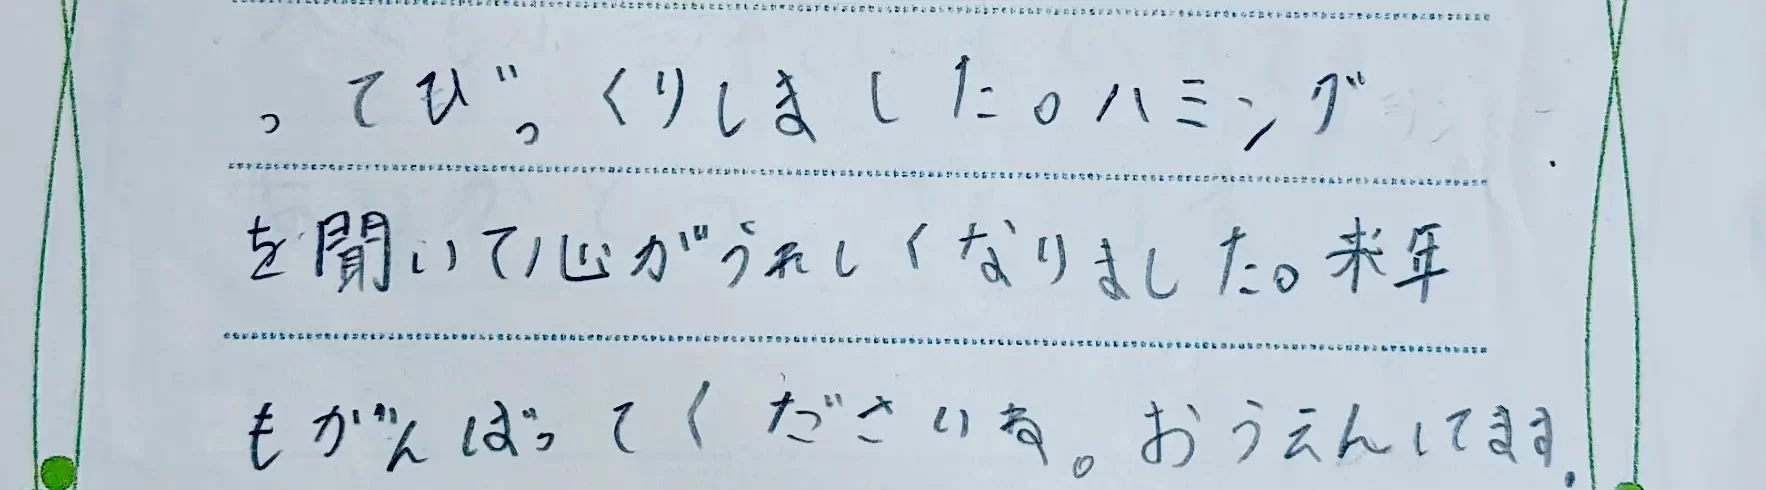 ってびっくりしました。ハミング
を聞いて心がうれしくなりました。来年
もがんばってくださいね。おうえんしてます.